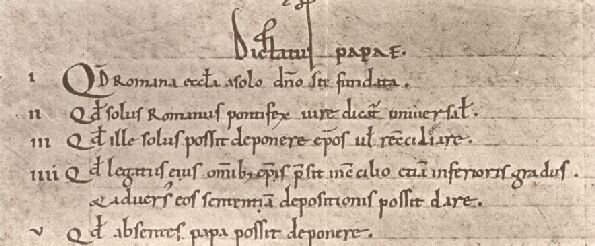 Dictatus papae.
i Qd Romana eccla a solo dno sit fundata.
ii Qd solus Romanus pontifex iure dicat universal.
iii Qd ille solus possit deponere epos ul reciliare.
iiii Qd legatus eius omib; epis psit in cilio etia inferioris gradus.
& advers eos sententia depositionis possit dare.
v Qd absentes papa possit deponere.